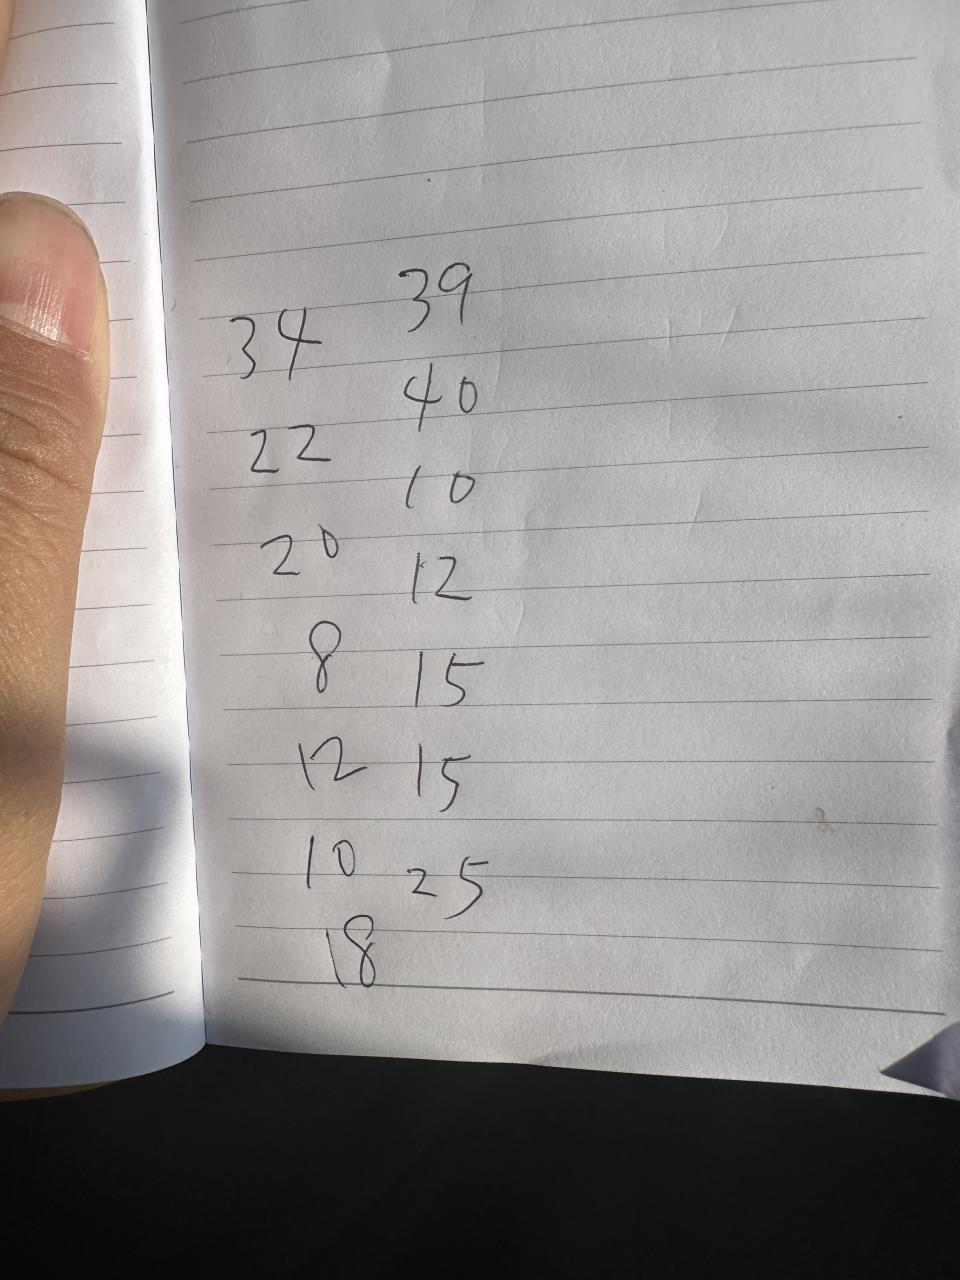 34 39
22 40
20 10
8 12
12 15
10 15
18 25